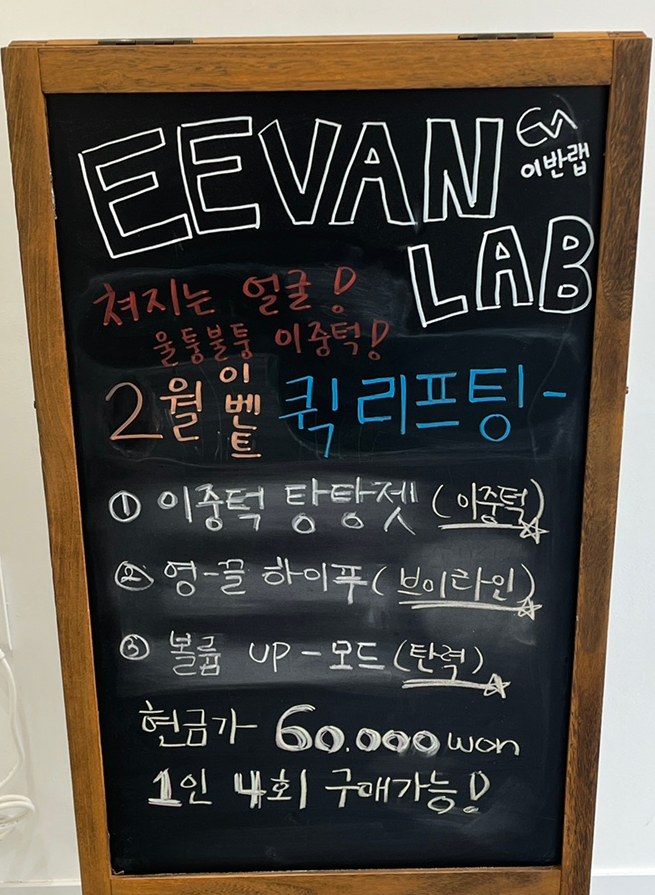 EEVAN
Eva
이반랩
LAB
쳐지는 얼굴!
울퉁불퉁 이중턱!
2월 이벤트 퀵 리프팅-
① 이중턱 탕탕젯 (이중턱)
② 영-끌 하이푸 (브이라인)
③ 볼륨 UP-모드 (탄력)
현금가 60.000 won
1인 4회 구매가능!